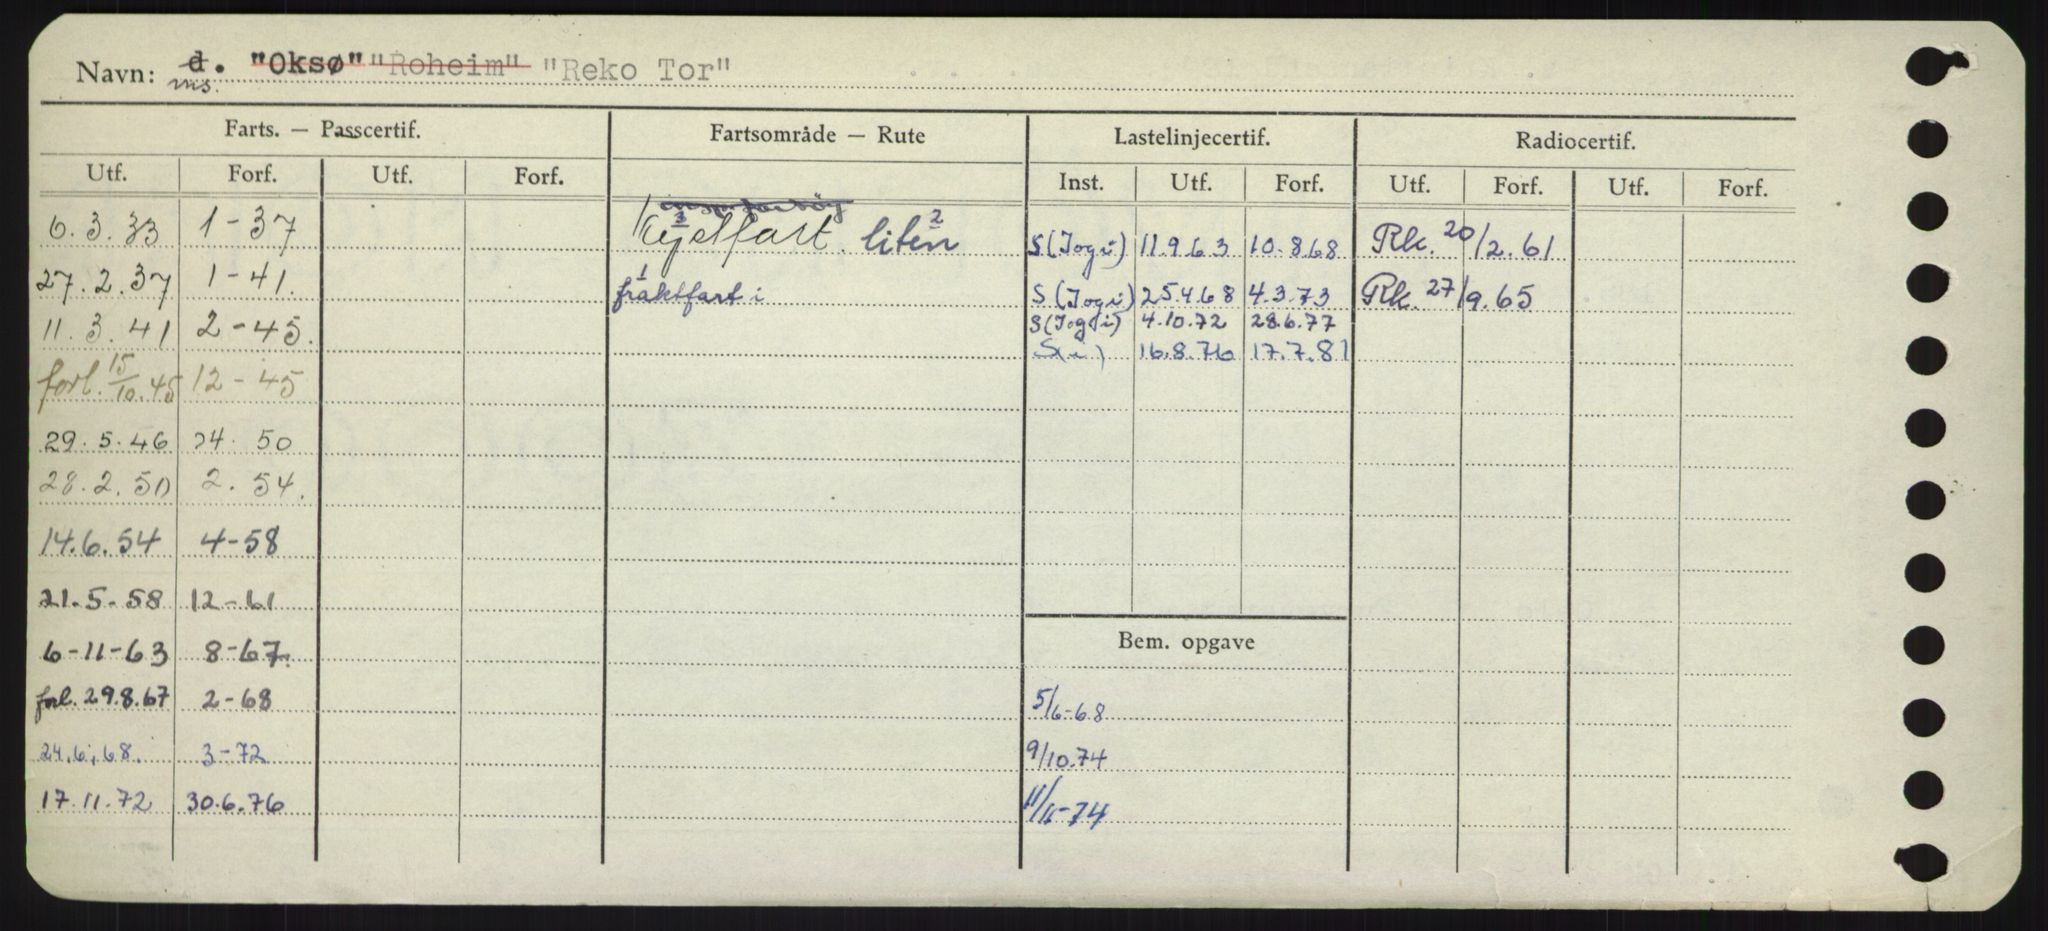 Navn: d. "Oksø" "Roheim" "Reko Tor"
ms.
Farts. — Passcertif. Fartsområde — Rute Lastelinjecertif. Radiocertif.
Utf. Forf. Utf. Forf. Inst. Utf. Forf. Utf. Forf. Utf. Forf.
6.3.33 1-37 Kystfart 3 liten 2 S (Jog i) 11.9.63 10.8.68 Rk. 20/2.61
27.2.37 1-41. 1 fraktfart i S (Jog i) 25.4.68 4.3.73 Rk. 27/9.65
11.3.41 2-45. S (Jog i) 4.10.72 28.6.77
S(i) 16.8.76 17.7.81
forl. 15/10.45 12-45
29.5.46 24. 50
28.2.50 2.54.
14.6.54 4-58
21.5-58 12-61
6-11-63 8-67. Bem. opgave
forl. 29.8.67 2-68 5/6-68
24.6.68. 3-72 9/10.74
17.11.72 30.6.76 11/11-74